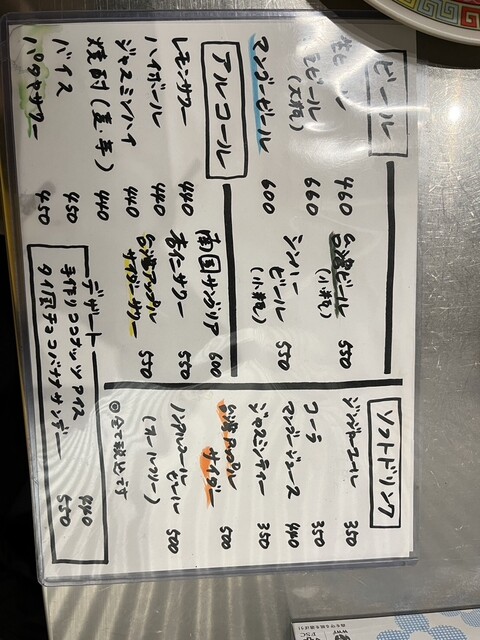 ビール
460
ビール 660
(大瓶)
マンゴービール 600
台湾ビール 550
(小瓶)
シンハー
ビール 550
(小瓶)
アルコール
レモンサワー 440
ハイボール 440
ジャスミンハイ 440
焼酎(麦・芋) 440
バイス 450
パクチサワー 450
南国サングリア 600
杏仁サワー 550
台湾アップル
サイダーサワー 550
ソフトドリンク
ジンジャーエール 350
コーラ 350
マンゴージュース 440
ジャスミンティー 350
台湾アップル
サイダー 500
ノンアルコール
ビール 500
(オールフリー)
◎全て税込です
デザート
手作りココナッツアイス 440
タイ風チョコバナナサンデー 550